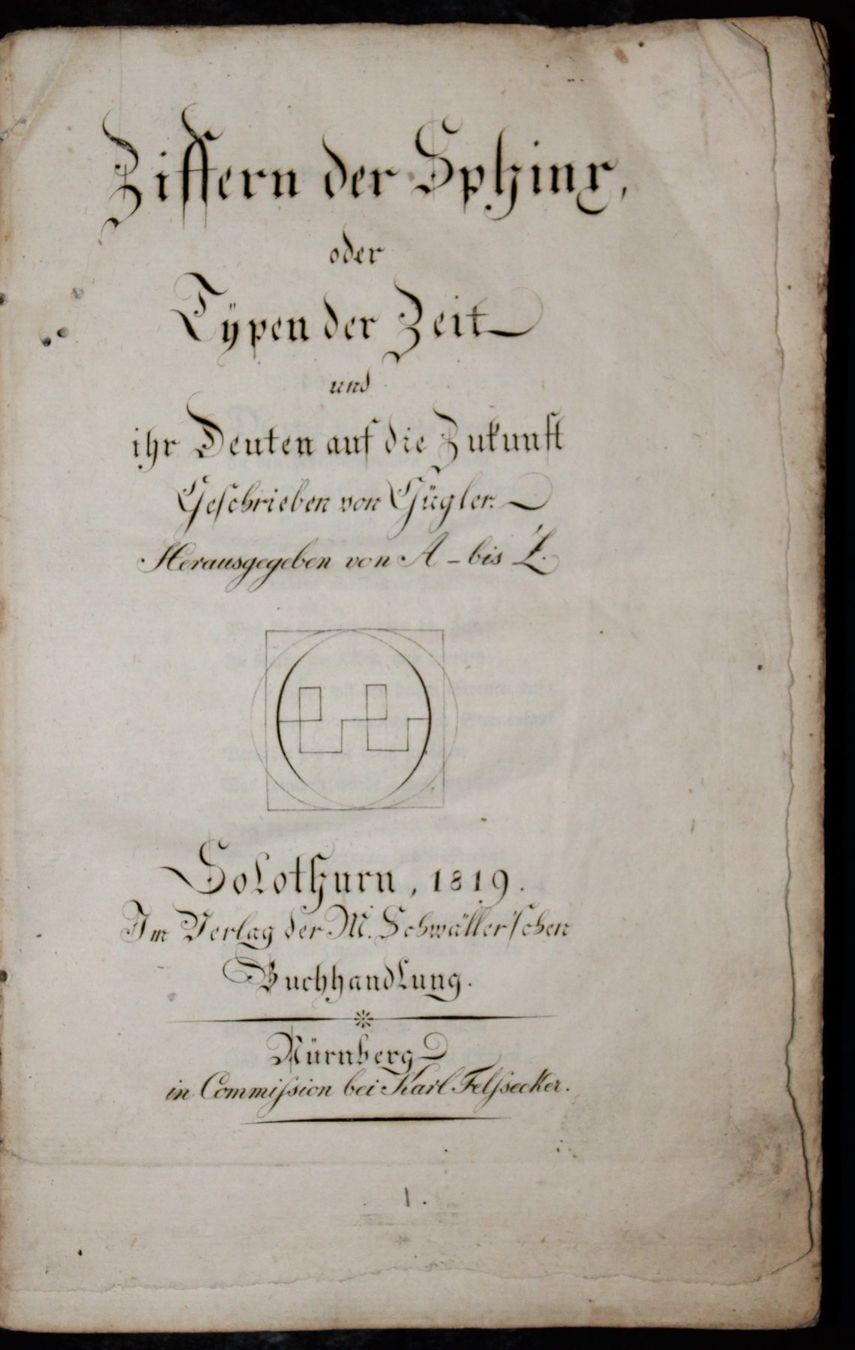 Ziffern der Sphinx,
oder
Tÿpen der Zeit
und
ihr Deuten auf die Zukunft
Geschrieben von Gügler.
Herausgegeben von A – bis Z.
Solothurn, 1819.
Im Verlag der M. Schwäller'schen
Buchhandlung.
Nürnberg
in Commission bei Karl Felssecker.
1.